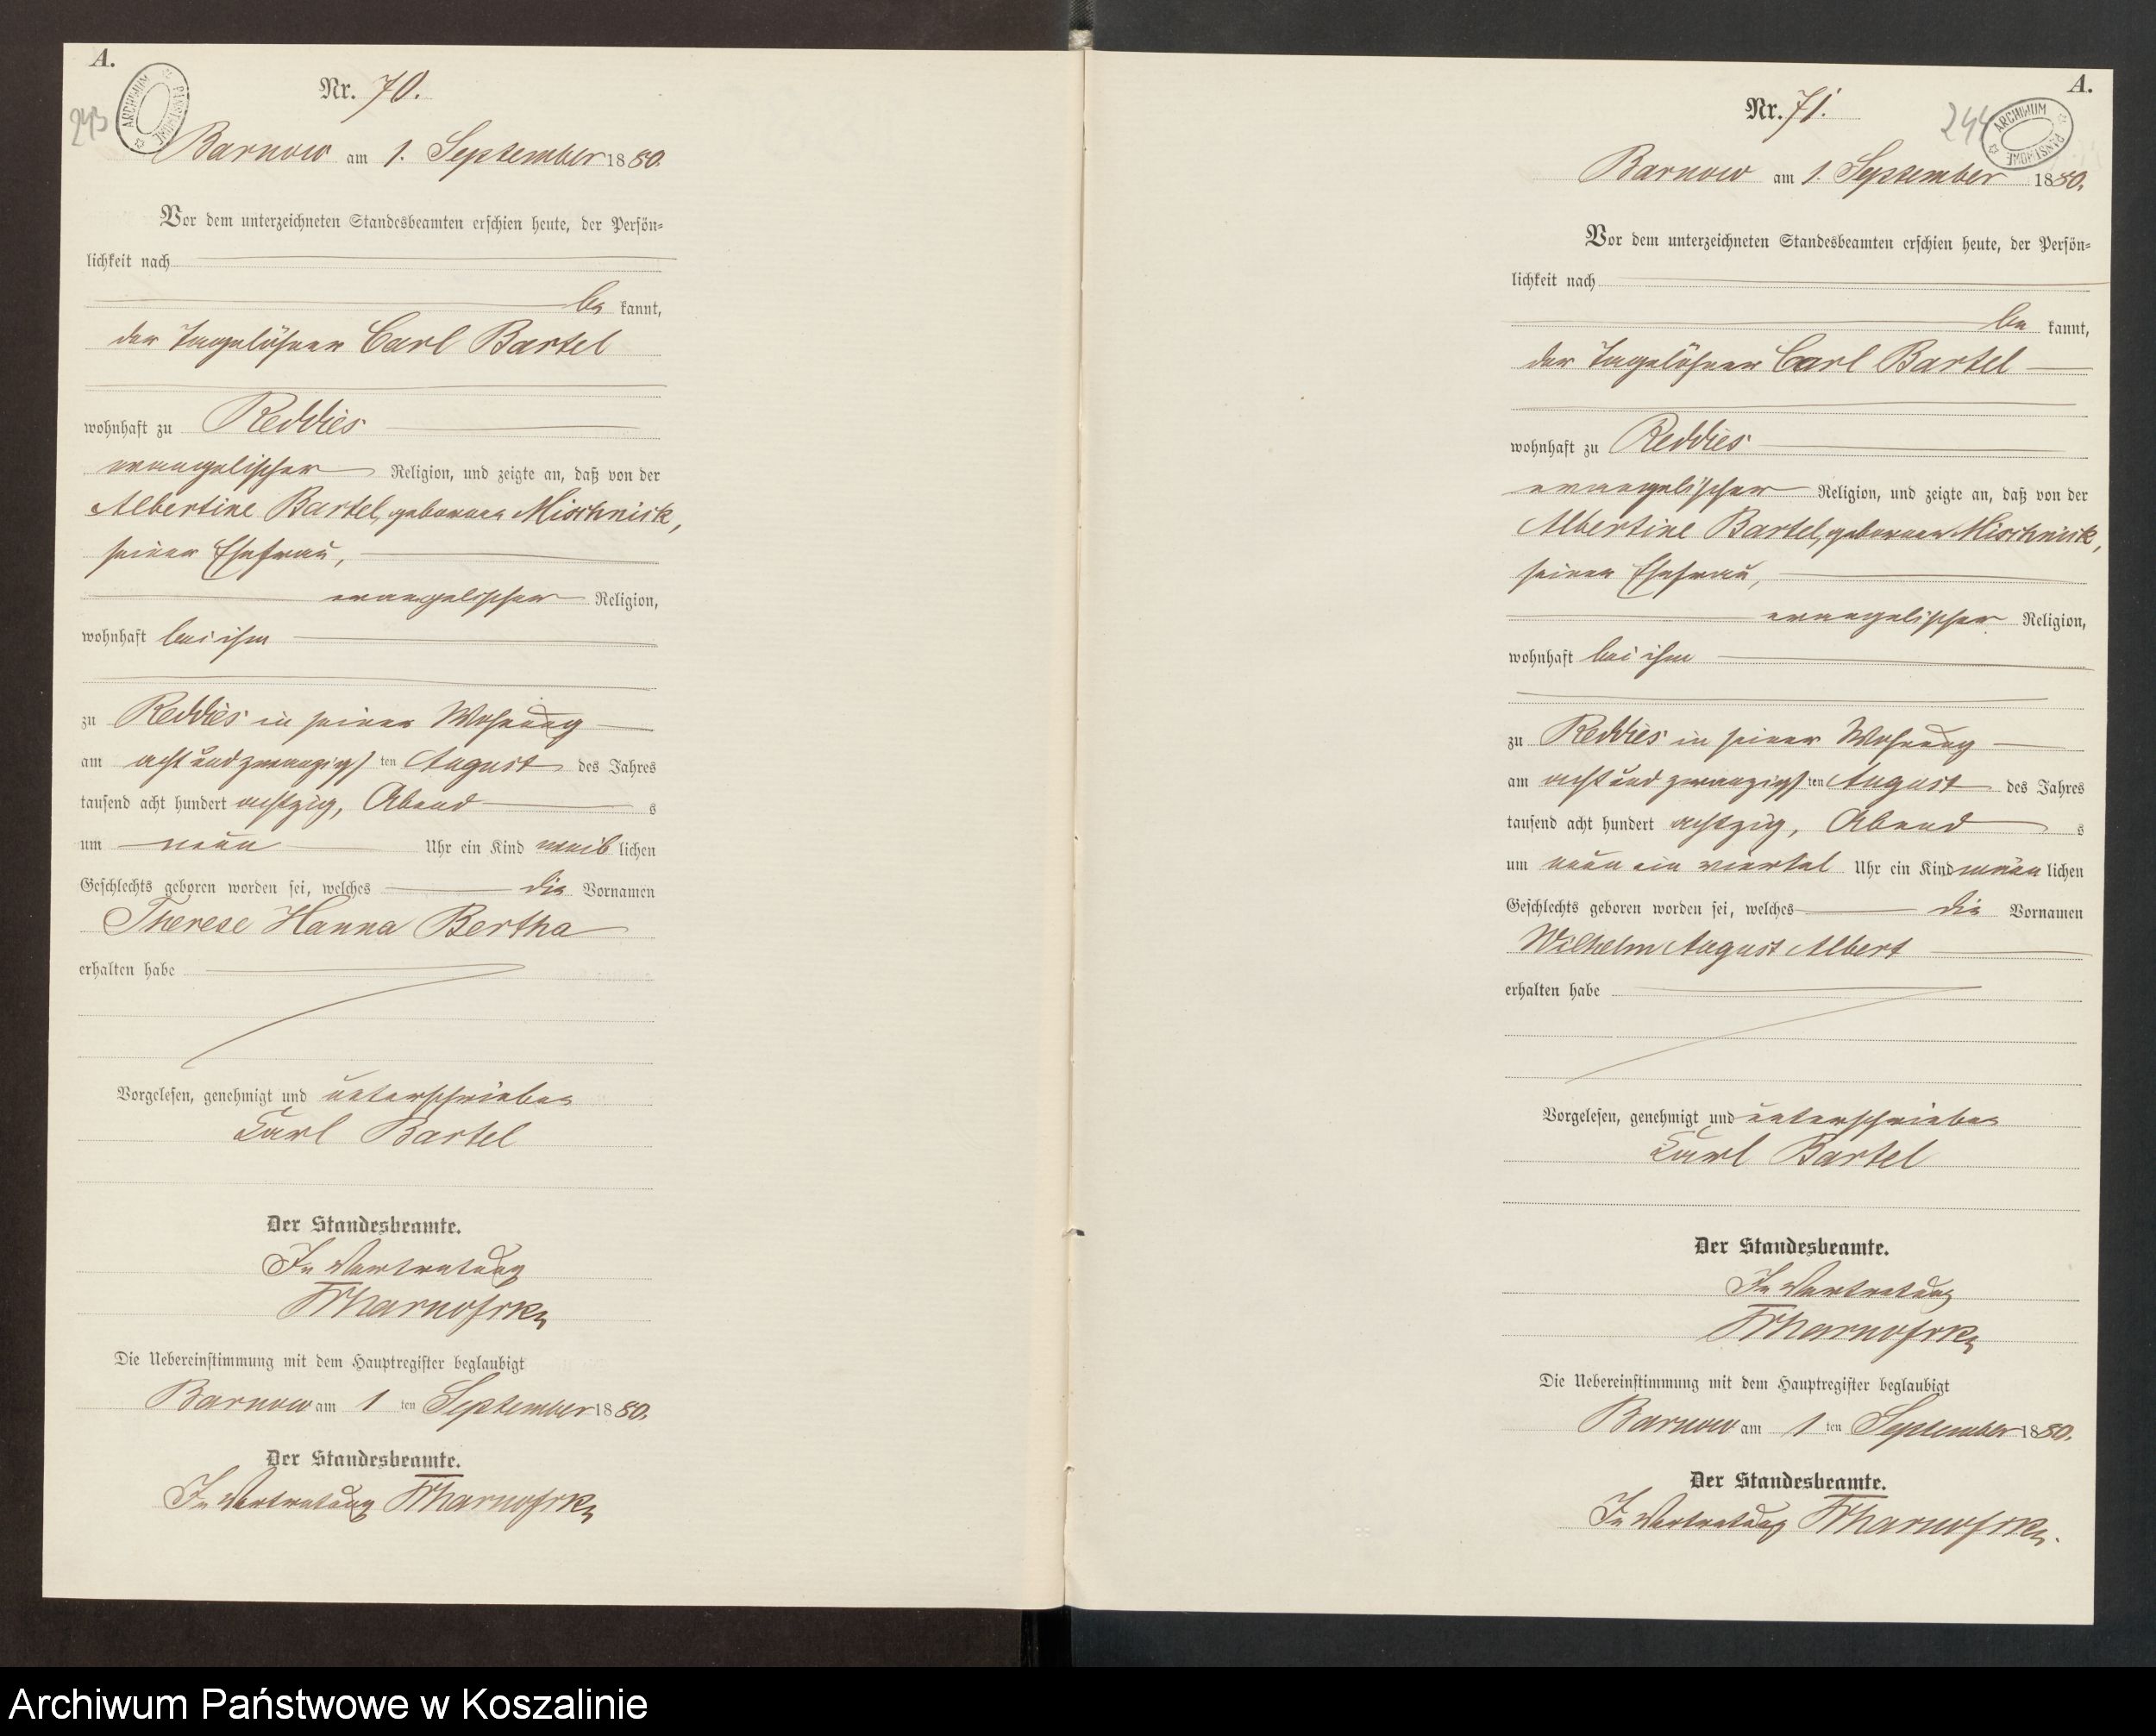 A.
ARCHIWUM PAŃSTWOWE
243
Nr. 70.
Barnow am 1. September 1880.
Vor dem unterzeichneten Standesbeamten erschien heute, der Persön-
lichkeit nach
be kannt,
der Tagelöhner Carl Bartel
wohnhaft zu Reddies
evangelischer Religion, und zeigte an, daß von der
Albertine Bartel, geborenen Mischnick,
seiner Ehefrau,
evangelischer Religion,
wohnhaft bei ihm
zu Reddies in seiner Wohnung
am acht und zwanzigs ten August des Jahres
tausend acht hundert achtzig, Abend s
um neun Uhr ein Kind weib lichen
Geschlechts geboren worden sei, welches die Vornamen
Therese Hanna Bertha
erhalten habe
Vorgelesen, genehmigt und unterschrieben
Carl Bartel
Der Standesbeamte.
In Vertretung
Die Uebereinstimmung mit dem Hauptregister beglaubigt
Barnow am 1 ten September 1880.
Der Standesbeamte.
In Vertretung
A.
ARCHIWUM PAŃSTWOWE
244
Nr. 71.
Barnow am 1. September 1880.
Vor dem unterzeichneten Standesbeamten erschien heute, der Persön-
lichkeit nach
be kannt,
der Tagelöhner Carl Bartel
wohnhaft zu Reddies
evangelischer Religion, und zeigte an, daß von der
Albertine Bartel, geborenen Mischnick,
seiner Ehefrau,
evangelischer Religion,
wohnhaft bei ihm
zu Reddies in seiner Wohnung
am acht und zwanzigs ten August des Jahres
tausend acht hundert achtzig, Abend s
um neun ein viertel Uhr ein Kind männ lichen
Geschlechts geboren worden sei, welches die Vornamen
Wilhelm August Albert
erhalten habe
Vorgelesen, genehmigt und unterschrieben
Carl Bartel
Der Standesbeamte.
In Vertretung
Die Uebereinstimmung mit dem Hauptregister beglaubigt
Barnow am 1 ten September 1880.
Der Standesbeamte.
In Vertretung
Archiwum Państwowe w Koszalinie